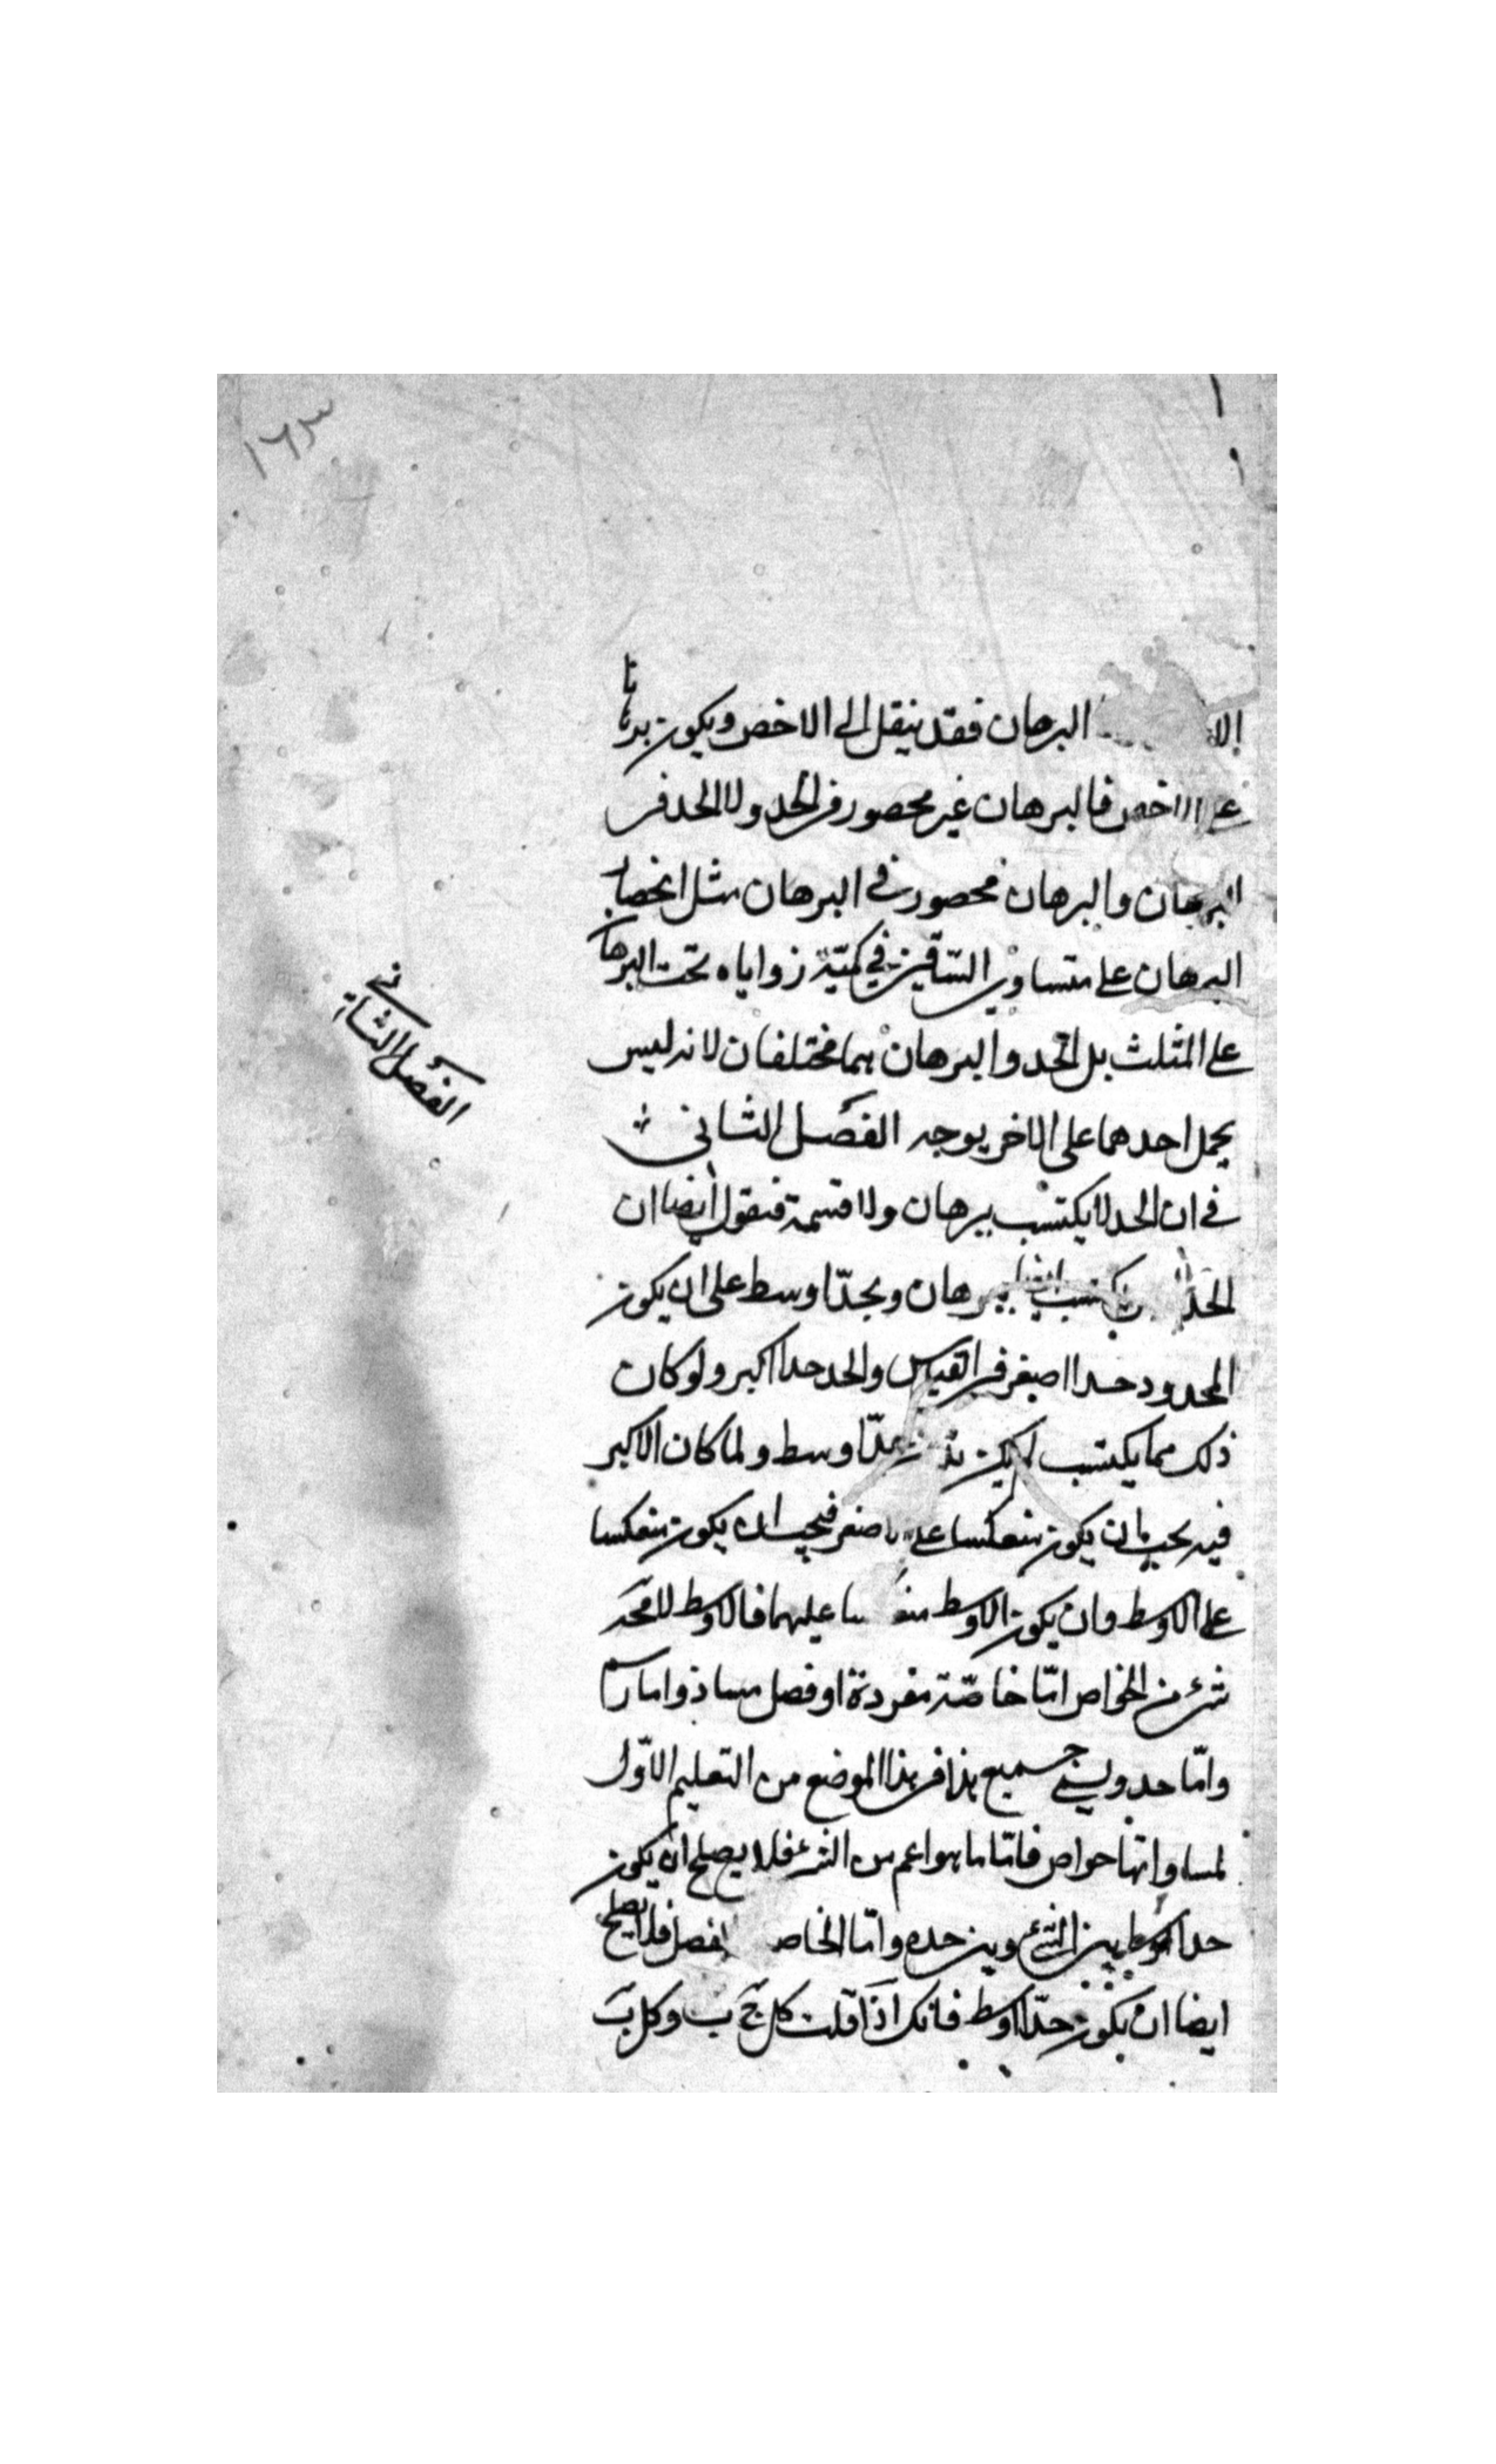 ١٦٣
البرهان فقد ينقل الى الاخص ويكون برهانا
على الاخص فالبرهان غير محصور في الحد ولا الحد في
البرهان والبرهان محصور في البرهان مثل انحصار
البرهان على متساوي الساقين في كمية زواياه تحت البرهان
على المثلث بل الحد والبرهان هما مختلفان لانه ليس
يحمل احدهما على الاخر بوجه الفصل الثاني
في ان الحد لا يكتسب ببرهان ولا قسمة فنقول ايضا ان
الحد يكتسب ببرهان وبحد اوسط على ان يكون
المحدود حدا اصغر في القياس والحد حدا اكبر ولو كان
ذلك مما يكتسب لم يكن حد اوسط ولما كان الاكبر
فيه يجب ان يكون منعكسا على الاصغر فيجب ان يكون منعكسا
على الاوسط وان يكون الاوسط عليهما فالاوسط لا محة
شيء من الخواص اما خاصة مفردة او فصل مساو اما رسما
واما حد وليسمى جميع هذا في هذا الموضع من التعليم الاول
لمساواتها خواص فاما ما هو اعم من الشيء فلا يصلح ان يكون
حدا اوسط بين الشيء وبين حده واما الخاص الفصل فلا يصلح
ايضا ان يكون حدا اوسط فانك اذا قلت كل ج ب وكل ب
الفصل الثاني